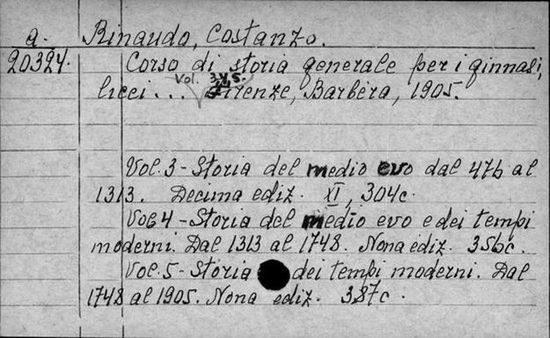 a. Rinaudo, Costanzo.
20324. Corso di storia generale per i ginnasi,
Vol. 3.4.5.
licei... Firenze, Barbèra, 1905.
Vol. 3 - Storia del medio evo dal 476 al
1313. Decima ediz. XI, 304c.
Vol 4 - Storia del medio evo e dei tempi
moderni. Dal 1313 al 1748. Nona ediz. 356c.
Vol. 5 - Storia dei tempi moderni. Dal
1748 al 1905. Nona ediz. 387c.